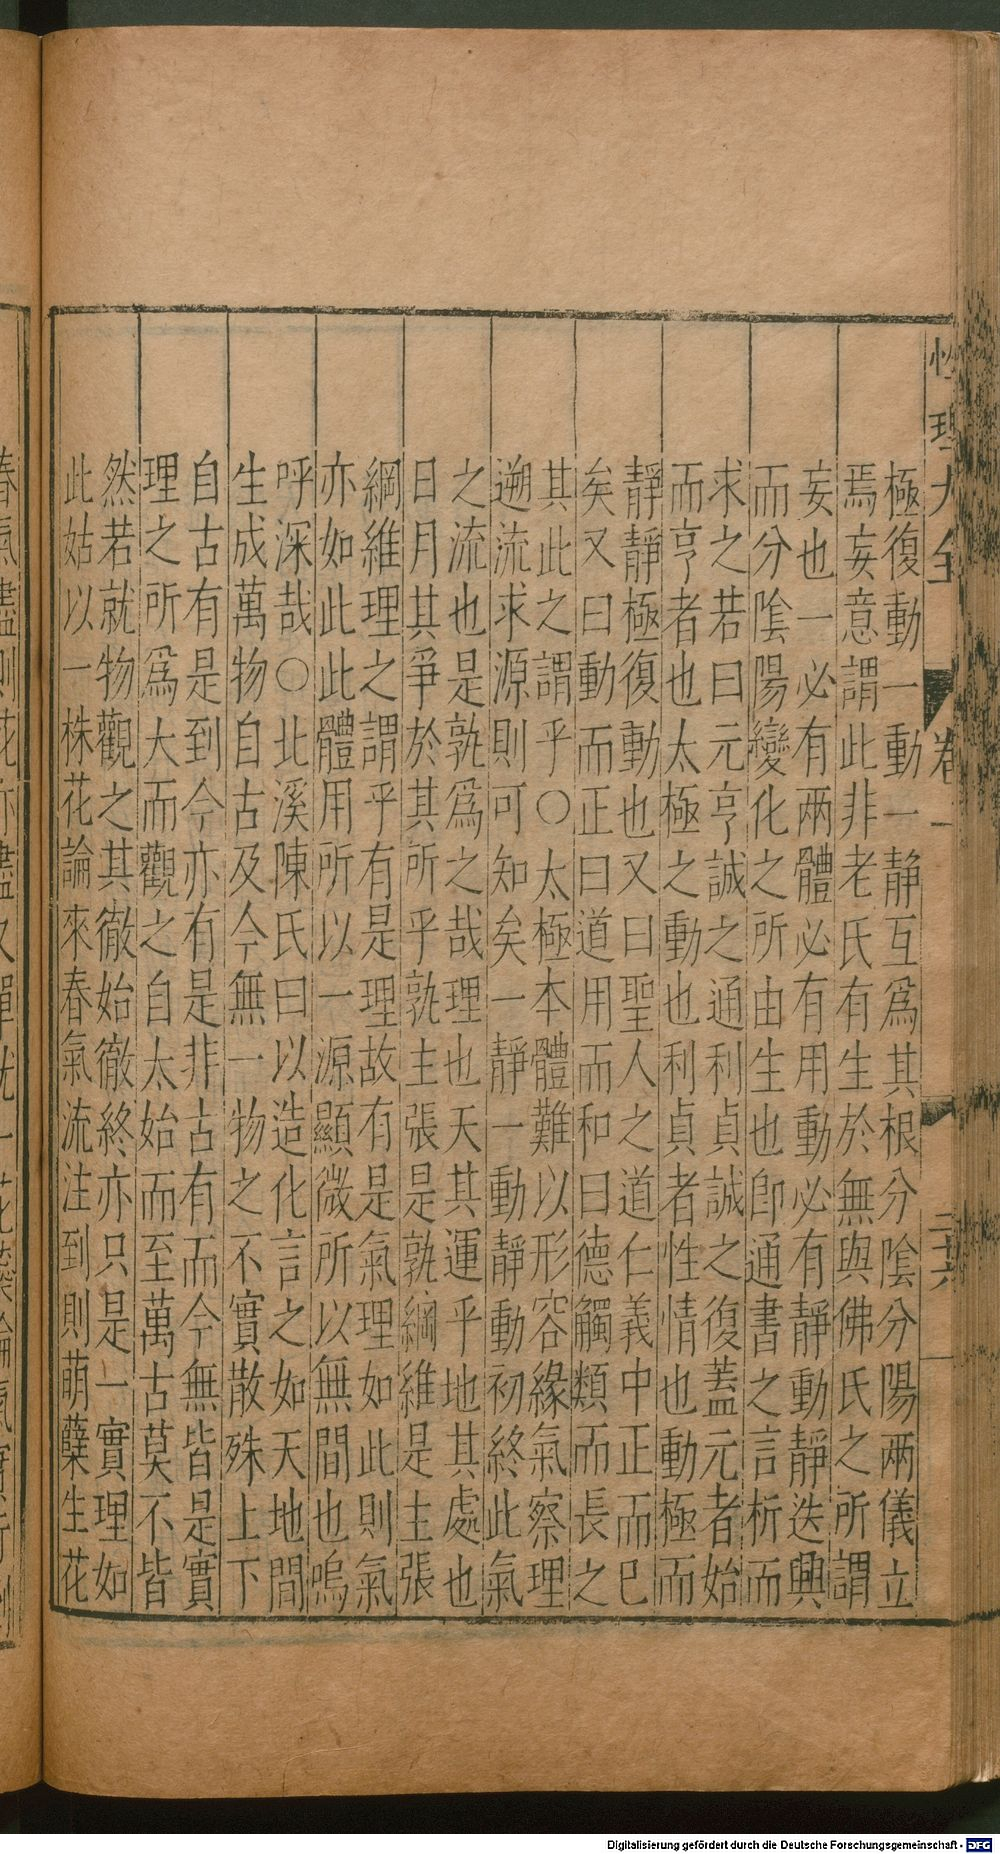 性理大全 卷一 二十六
極復動一動一靜互爲其根分陰分陽兩儀立
焉妄意謂此非老氏有生於無與佛氏之所謂
妄也一必有兩體必有用動必有靜動靜迭興
而分陰陽變化之所由生也卽通書之言析而
求之若曰元亨誠之通利貞誠之復蓋元者始
而亨者也太極之動也利貞者性情也動極而
靜靜極復動也又曰聖人之道仁義中正而已
矣又曰動而正曰道用而和曰德觸類而長之
其此之謂乎○太極本體難以形容緣氣察理
遡流求源則可知矣一靜一動靜動初終此氣
之流也是孰爲之哉理也天其運乎地其處也
日月其爭於其所乎孰主張是孰綱維是主張
綱維理之謂乎有是理故有是氣理如此則氣
亦如此此體用所以一源顯微所以無間也嗚
呼深哉○北溪陳氏曰以造化言之如天地間
生成萬物自古及今無一物之不實散殊上下
自古有是到今亦有是非古有而今無皆是實
理之所爲大而觀之自太始而至萬古莫不皆
然若就物觀之其徹始徹終亦只是一實理如
此姑以一株花論來春氣流注到則萌蘖生花
Digitalisierung gefördert durch die Deutsche Forschungsgemeinschaft - DFG